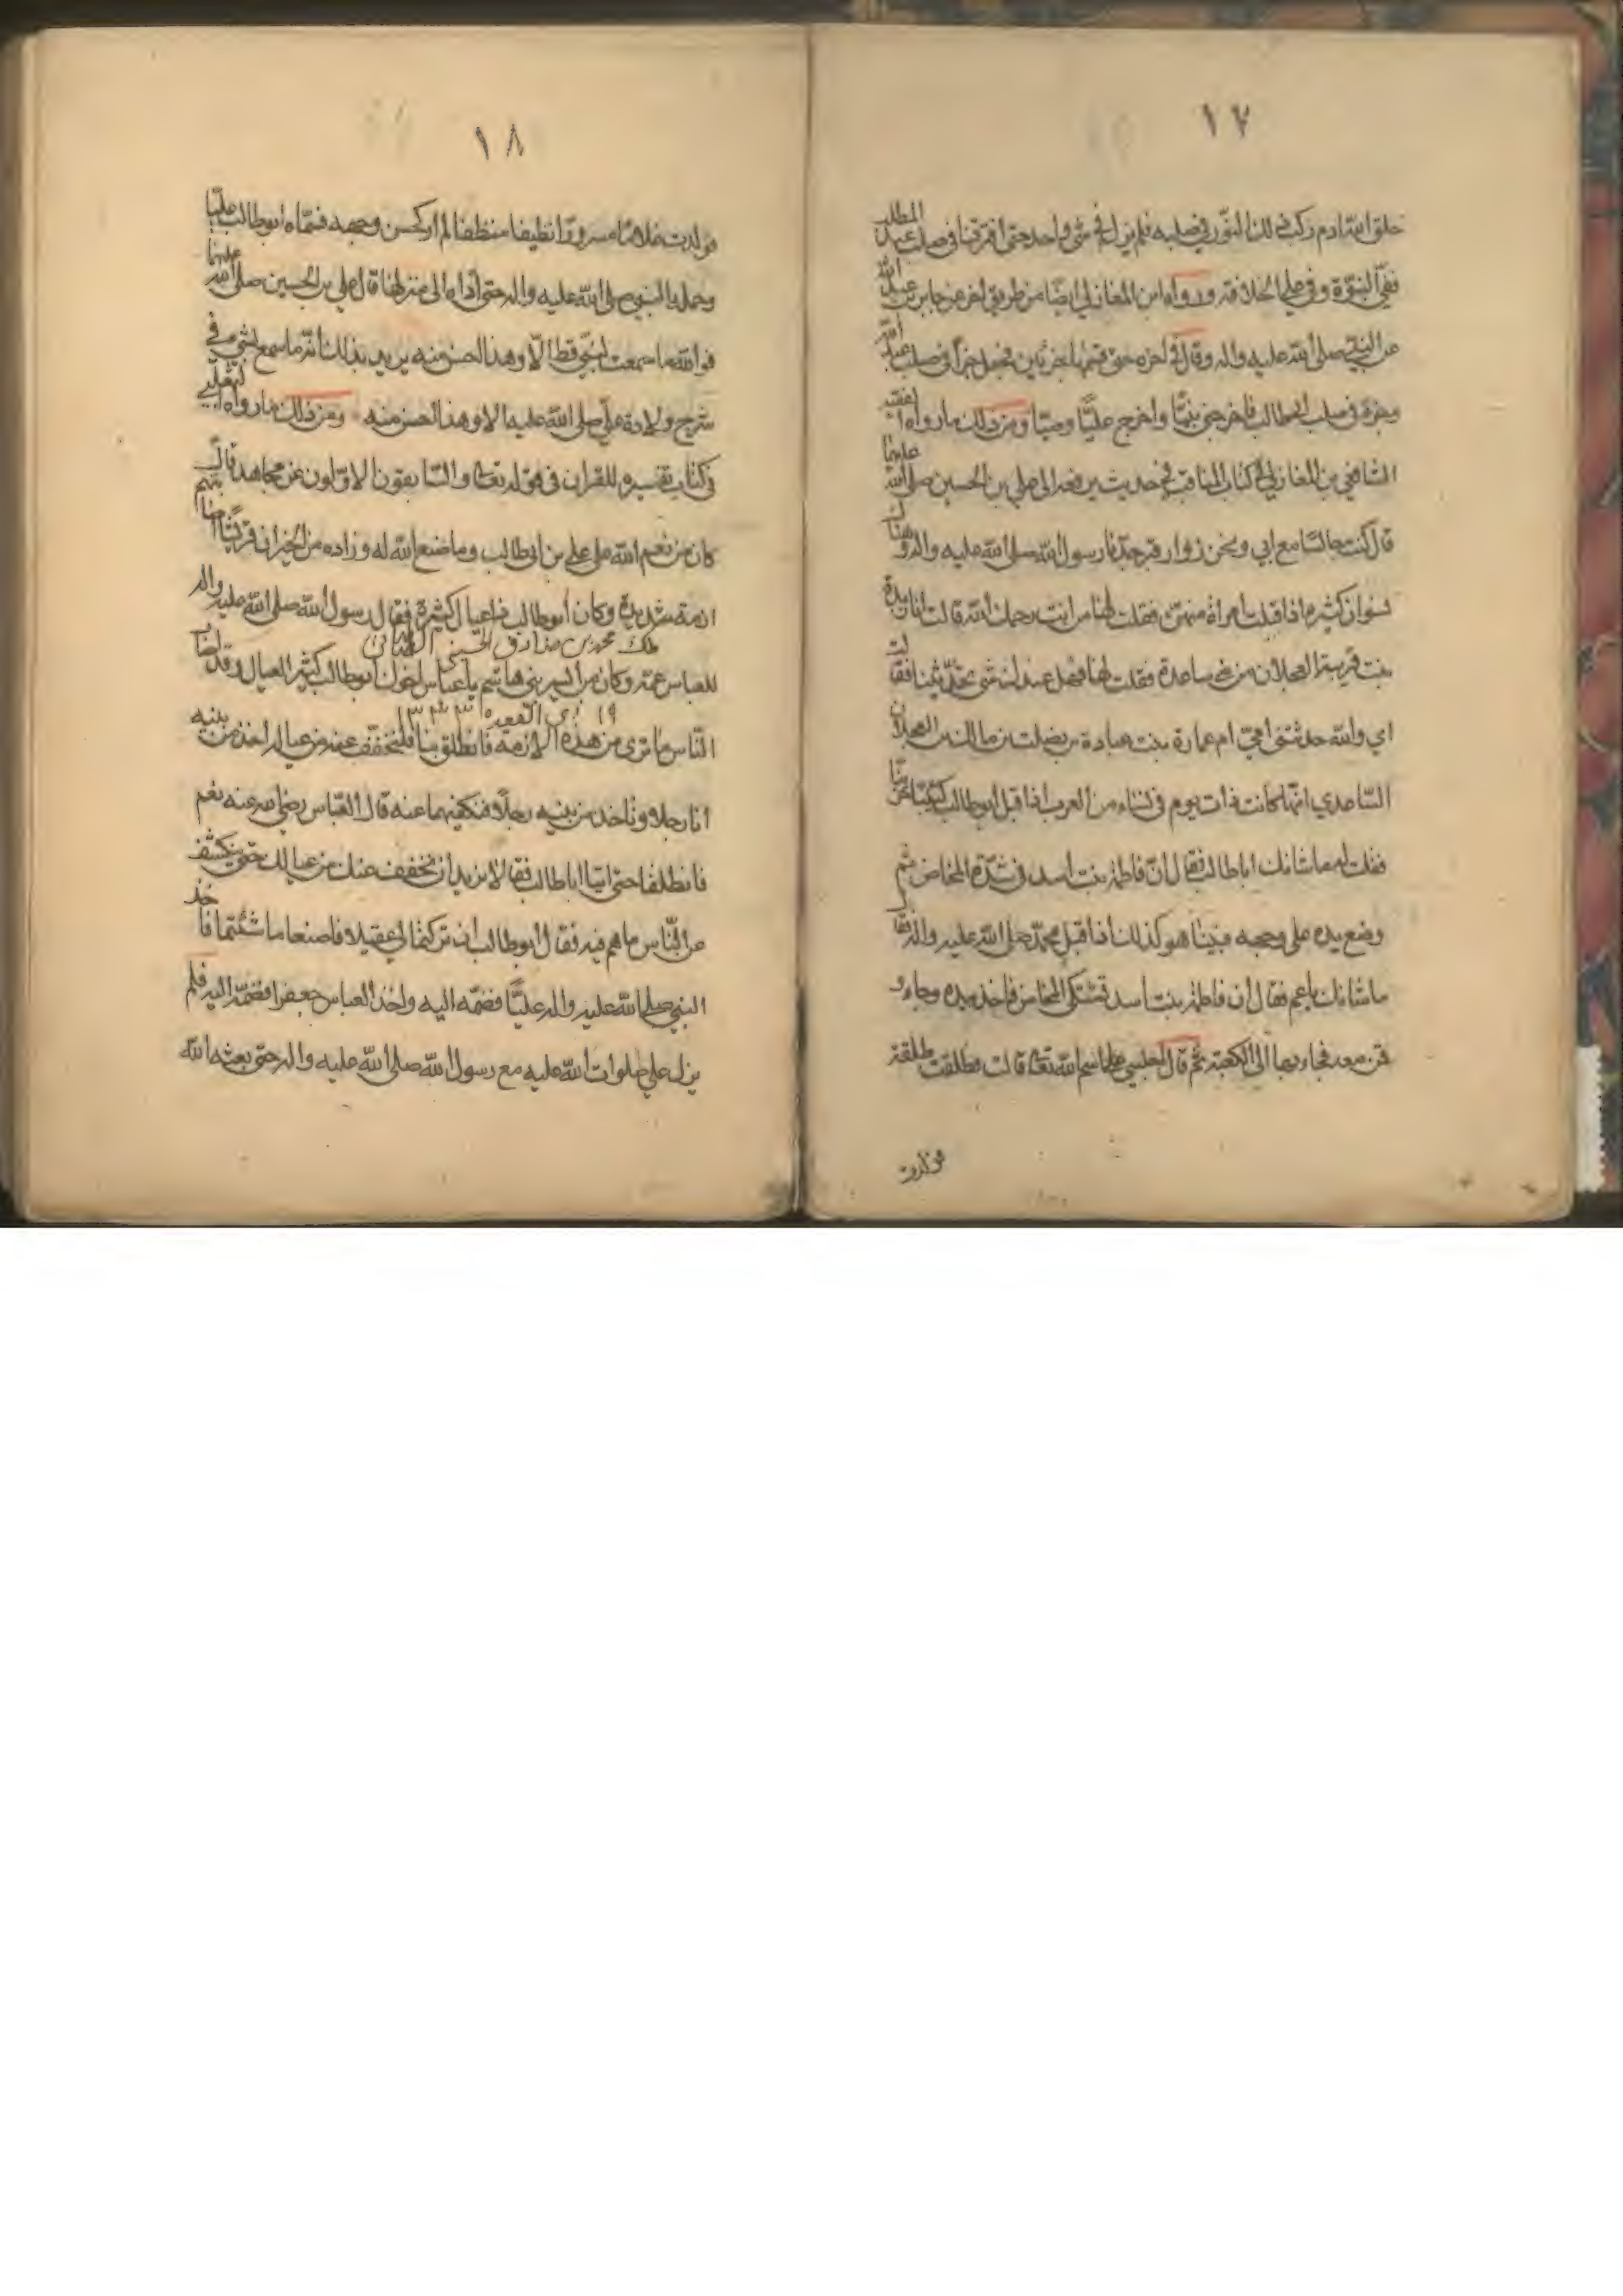 ١٧
خلق الله ادم ركب ذلك النور في صلبه فلم يزل في شئ واحد حتى افترقنا في صلب عبد المطلب
ففي النبوة وفي علي الخلافة ورواه ابن المغازلي ايضا من طريق اخر عن جابر بن عبد الله
عن النبي صلى الله عليه واله وقال في اخره حتى قسمها جزئين فجعل جزأ في صلب عبد الله
وجزء في صلب ابي طالب فاخرجني نبيا واخرج عليا وصيا ومن ذلك ما رواه الفقيه
الشافعي بن المغازلي في كتاب المناقب في حديث يرفعه الى علي بن الحسين صلى الله عليهما
قال كنت جالسا مع ابي ونحن زوار قبر جدنا رسول الله صلى الله عليه واله وهناك
نسوان كثيرة اذ اقبلت امراة منهن فقلت لها من انت رحمك الله قالت انا زيدة
بنت قريبة العجلان من بني ساعدة فقلت لها فهل عندك شئ تحدثينا فقالت
اي والله حدثتني امي ام عمارة بنت عبادة بن نضلة بن مالك بن العجلان
الساعدي انها كانت ذات يوم في نساء من العرب اذ اقبل ابو طالب كئيبا حزينا
فقلت له ما شانك يا ابا طالب فقال ان فاطمة بنت اسد في شدة المخاض ثم
وضع يده على وجهه فبينا هو كذلك اذ اقبل محمد صلى الله عليه واله فقال
ما شانك يا عم فقال ان فاطمة بنت اسد تشتكي المخاض فاخذ بيده وجاء و
قمن معه فجاء بها الى الكعبة ثم قال اجلسي على اسم الله تعالى قالت فطلقت طلقة
فولدت
١٨
فولدت غلاما مسرورا نظيفا منظفا لم ار كحسن وجهه فسماه ابو طالب عليا
وحمله النبي صلى الله عليه واله حتى اداه الى منزلها قال علي بن الحسين صلى الله عليهما
فوالله ما سمعت بشئ قط الا وهذا احسن منه يريد بذلك انه ما سمع بشئ في
شرح ولادة علي صلى الله عليه الا وهذا احسن منه ومن ذلك ما رواه الثعلبي
في كتاب تفسيره للقران في قوله تعالى والسابقون الاولون عن مجاهد قال
كان من نعم الله على علي بن ابي طالب وما صنع الله له وزاده من الخير ان قريشا اصابتهم
ازمة شديدة وكان ابو طالب ذا عيال كثيرة فقال رسول الله صلى الله عليه واله
ملك محمد بن صادق الحسيني
للعباس عمه وكان من ايسر بني هاشم يا عباس اخوك ابو طالب كثير العيال وقد اصاب
١٩ ذي القعدة
الناس ما ترى من هذه الازمة فانطلق بنا فلنخفف عنه من عياله اخذ من بنيه
انا رجلا وتاخذ من بنيه رجلا فنكفيهما عنه قال العباس رضي الله عنه نعم
فانطلقا حتى اتيا ابا طالب فقالا نريد ان نخفف عنك من عيالك حتى ينكشف
عن الناس ما هم فيه فقال ابو طالب ان تركتما لي عقيلا فاصنعا ما شئتما فاخذ
النبي صلى الله عليه واله عليا فضمه اليه واخذ العباس جعفرا فضمه اليه فلم
يزل علي صلوات الله عليه مع رسول الله صلى الله عليه واله حتى بعثه الله